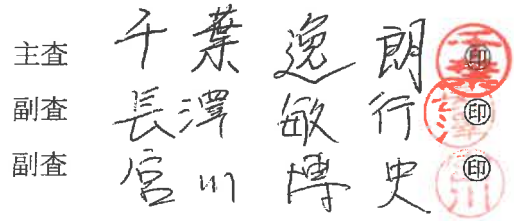 主査 千葉 逸朗 ㊞
副査 長澤 敏行 ㊞
副査 宮川 博史 ㊞